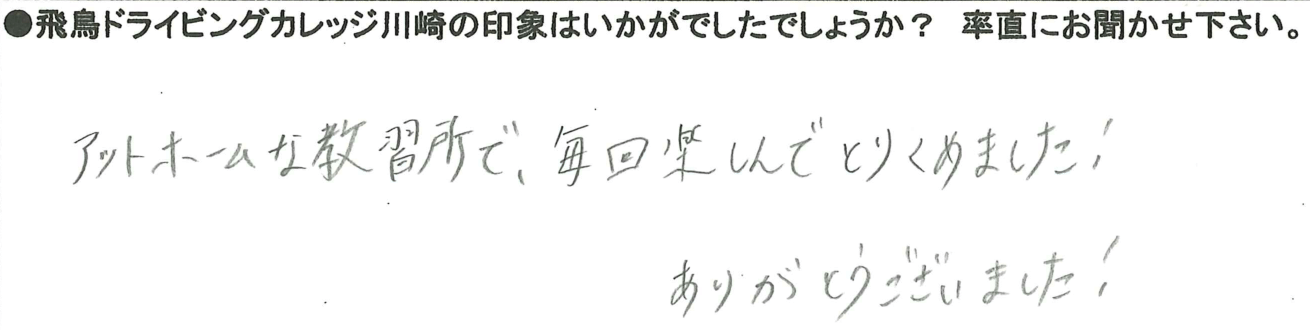 ●飛鳥ドライビングカレッジ川崎の印象はいかがでしたでしょうか？　率直にお聞かせ下さい。
アットホームな教習所で、毎回楽しんでとりくめました！
ありがとうございました！